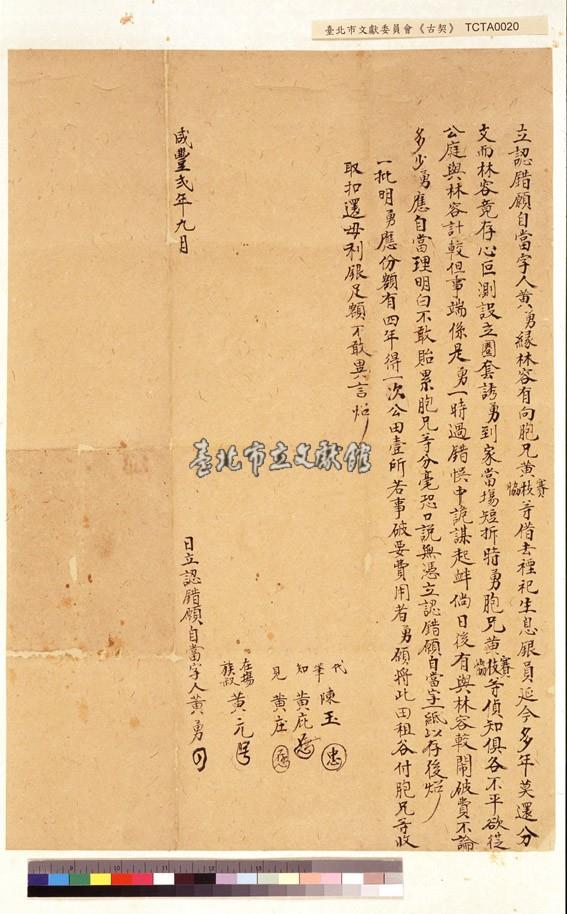 臺北市文獻委員會《古契》 TCTA0020
立認錯願自當字人黃勇緣林容有向胞兄黃賽枝協等借去禋祀生息銀員延今多年莫還分
文而林容竟存心叵測設立圈套誘勇到家當場短折時勇胞兄黃賽枝協等偵知俱各不平欲從
公庭與林容計較但事端係是勇一時過錯悞中詭謀起衅倘日後有與林容較鬧破費不論
多少勇應自當理明白不敢貽累胞兄等分毫恐口說無憑立認錯願自當字一紙以存後炤
一批明勇應份額有四年得一次公田壹所若事破要費用者勇願將此田租谷付胞兄等收
取扣還母利銀足額不敢異言炤
代筆 陳玉 忠
知 黃庇
見 黃庄
在場族叔 黃元 号
咸豐弍年九月
日立認錯願自當字人黃勇
臺北市立文獻館